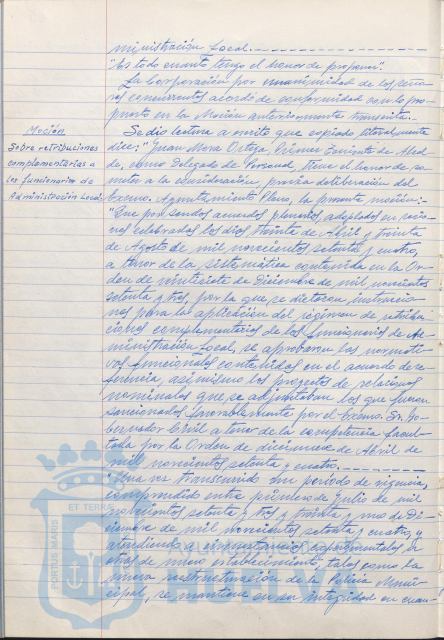 ministración Local.-
"Es todo cuanto tengo el honor de proponer".
La Corporación por unanimidad de los seño-
res concurrentes acordó de conformidad con lo pro-
puesto en la Moción anteriormente transcrita.-
Moción
Sobre retribuciones
complementarias a
los funcionarios de
Administración Local
Se dio lectura a escrito que copiado literalmente
dice: "Juan Mora Ortega, Primer Teniente de Alcal-
de, como Delegado de Personal, tiene el honor de so-
meter a la consideración y previa deliberación del
Excmo. Ayuntamiento Pleno, la presente moción:-
"Que por sendos acuerdos plenarios adoptados en sesio-
nes celebradas los días treinta de Abril y treinta
de Agosto de mil novecientos setenta y cuatro,
a tenor de la sistemática contenida en la Or-
den de veintisiete de Diciembre de mil novecientos
setenta y tres, por la que se dictaron instruccio-
nes para la aplicación del régimen de retribu-
ciones complementarias de los funcionarios de Ad-
ministración Local, se aprobaron las normati-
vas funcionales contenidas en el acuerdo de re-
ferencia, asimismo los proyectos de relaciones
nominales que se adjuntaban los que fueron
sancionados favorablemente por el Excmo. Sr. Go-
bernador Civil a tenor de la competencia facul-
tada por la Orden de de Abril de
mil novecientos setenta y cuatro.-
"Una vez transcurrido un período de vigencia,
comprendido entre primero de julio de mil
novecientos setenta y tres y treinta y uno de Di-
ciembre de mil novecientos setenta y cuatro, y
atendiendo a circunstancias experimentales u
otras de nuevo establecimiento, tales como la
nueva reestructuración de la Policía Muni-
cipal, se mantiene en su integridad en cuan-
PORTUS MARIS ET TERRAE